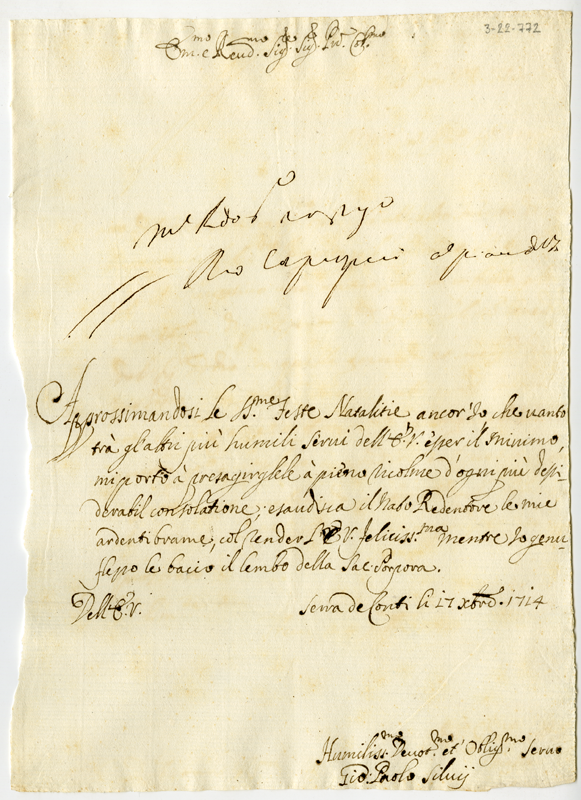 3-22-772
Em.mo e Reud.mo Sig.re Sig.r Prõn Col.mo
Rdo
Approssimandosi le SS.me Feste Natalitie ancor'Io che uanto
trà gl'altri più humili serui dell'E.V. esser il minimo,
mi porto à presagirglele à pieno ricolme d'ogni più desi-
derabil consolatione; esaudisca il Nato Redentore le mie
ardenti brame, col render l'E.V. feliciss.ma mentre Io genu-
flesso le bacio il lembo della Sac: Porpora.
Dell'E.V.
Serra de Conti li 17 xbre. 1714
Humiliss.mo Deuot.mo et Oblig.mo Seruo
Gio: Paolo Siluij